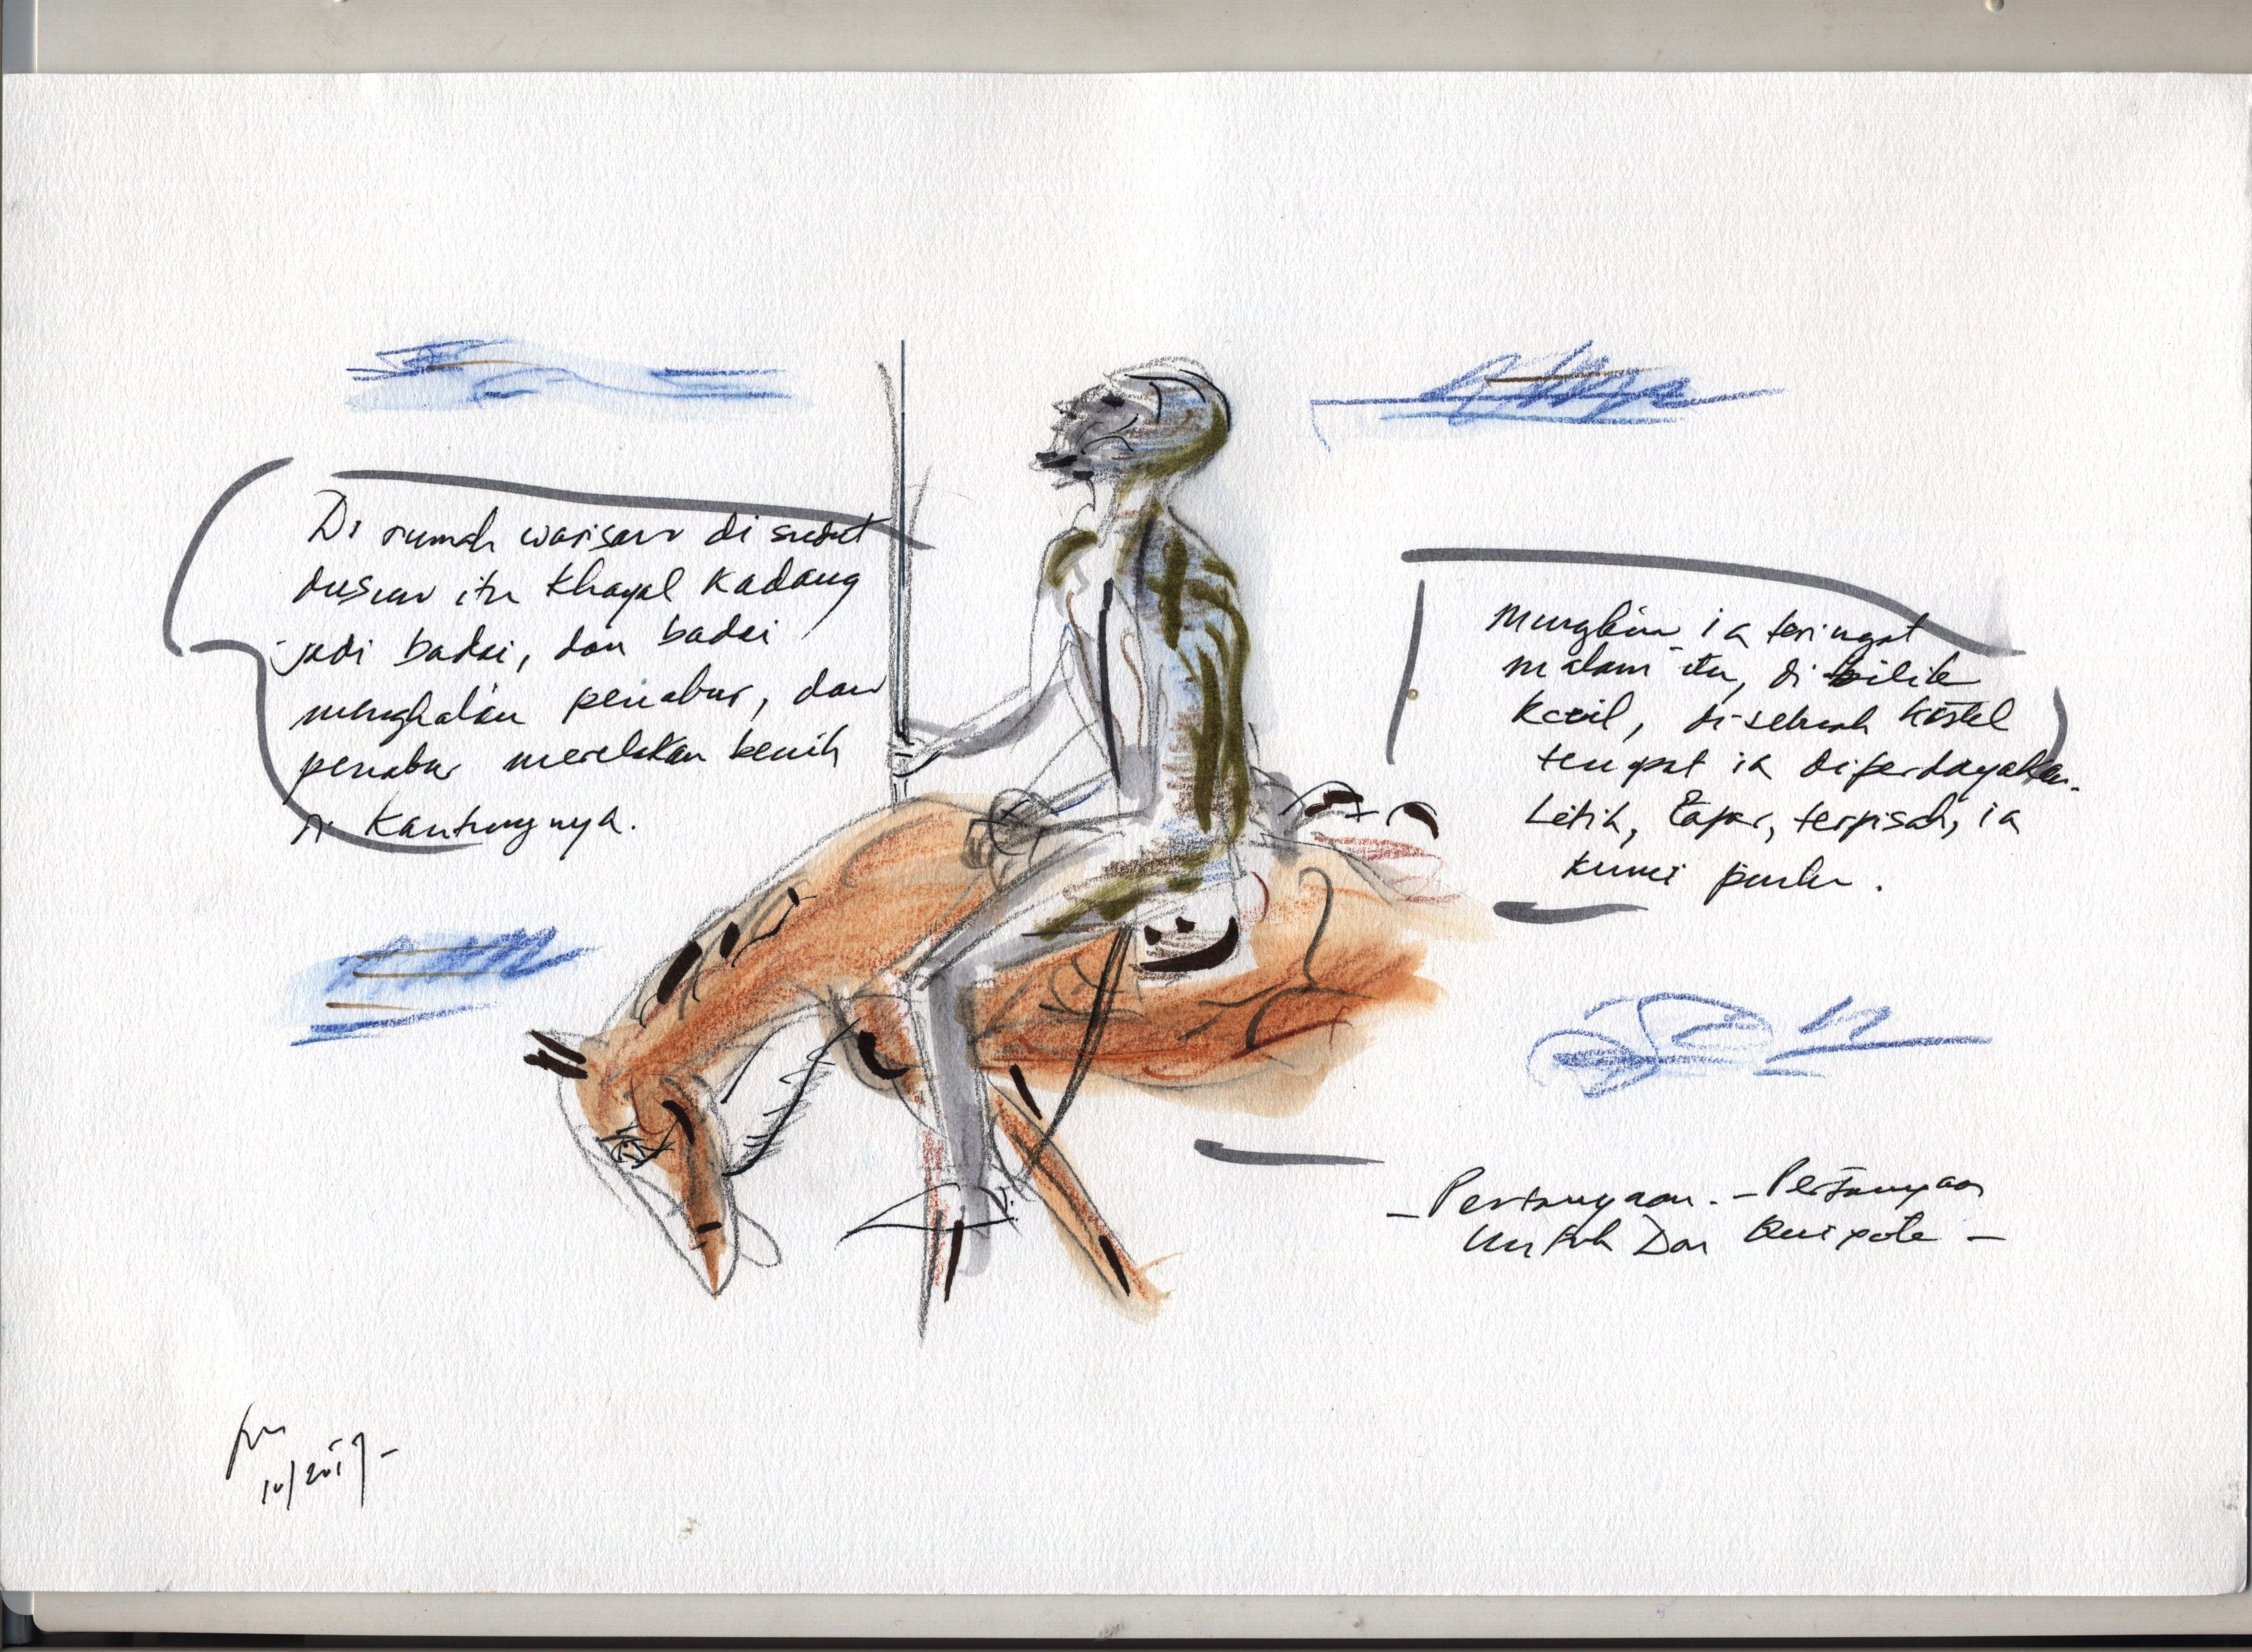 Di rumah warisan di sudut
dusun itu khayal kadang
jadi badai, dan badai
menghalau penabur, dan
penabur merelakan benih
di kantungnya.
Mungkin ia teringat
malam itu, di bilik
kecil, di sebuah hostel
tempat ia diperdayakan.
Letih, lapar, terpisah, ia
kunci pintu.
- Pertanyaan - Pertanyaan
Untuk Don Quixote -
10/2017-